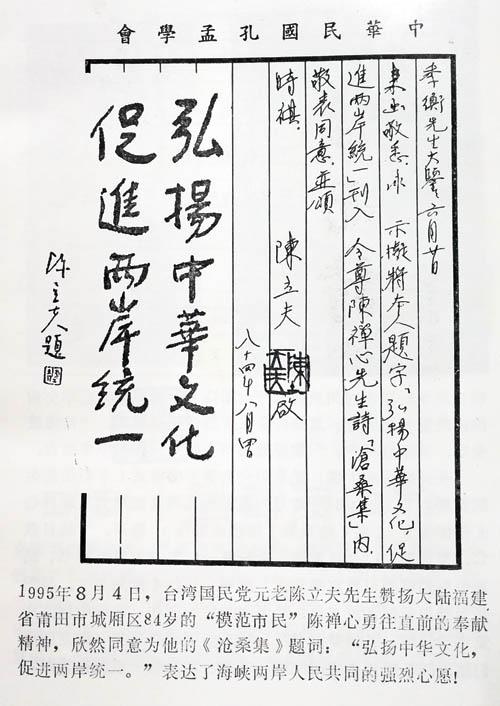 中華民國孔孟學會
季衡先生大鑒六月廿日
來函敬悉承 示擬將本人題字「弘揚中華文化,促
進兩岸統一」刊入 令尊陳禪心先生詩「滄桑集」內,
敬表同意.並頌
時祺.
陳立夫 啟
八十四年八月四日
弘揚中華文化
促進兩岸統一
陈立夫題
1995年8月4日，台湾国民党元老陈立夫先生赞扬大陆福建
省莆田市城厢区84岁的“模范市民”陈禅心勇往直前的奉献
精神，欣然同意为他的《沧桑集》题词：“弘扬中华文化，
促进两岸统一。”表达了海峡两岸人民共同的强烈心愿!